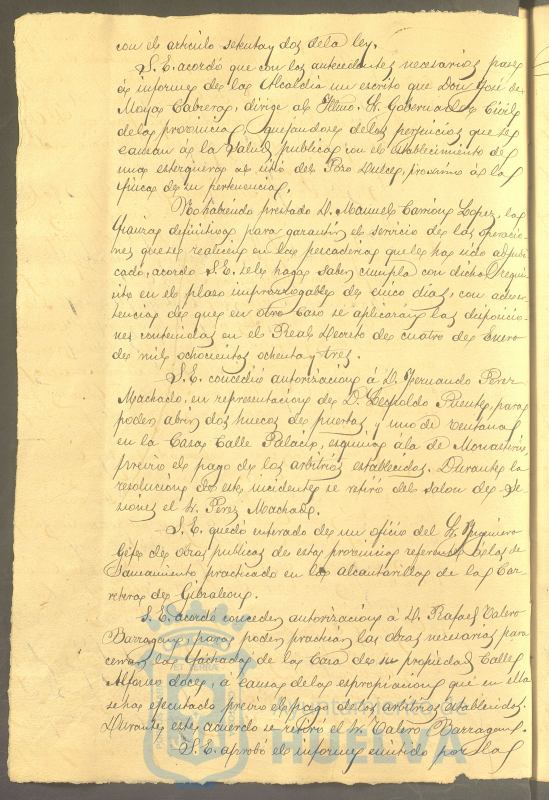 con el artículo setenta y dos de la ley.
S. E. acordó que con los antecedentes necesarios pase
á informe de la Alcaldía un escrito que Don José de
Moya Cabrera, dirige al Iltmo. Sr. Gobernador Civil
de la provincia, quejandose de los perjuicios que se
causan á la salud publica con el establecimiento de
una estorquera al sitio del Pozo Dulce, proximo á la
finca de su pertenencia.
No habiendo prestado D. Manuel Carrion Lopez, la
fianza definitiva para garantir el servicio de las operacio-
nes que se realicen en la pescaderia que le ha sido adjudi-
cado, acordo S. E. se le haga saber cumpla con dicho requi-
sito en el plazo improrrogable de cinco dias, con adver-
tencia de que en otro caso se aplicaran las disposicio-
nes contenidas en el Real Decreto de cuatro de Enero
de mil ochocientos ochenta y tres.
S. E. concedió autorizacion á D. Fernando Perez
Machado, en representacion de D. Leopoldo Puente, para
poder abrir dos huecos de puertas y uno de ventana
en la Casa Calle Palacio, esquina á la de Monasterio
previo el pago de los arbitrios establecidos. Durante la
resolucion de este incidente se retiró del salon de se-
siones el Sr. Perez Machado.
S. E. quedó enterado de un oficio del Sr. Yngeniero
Gefe de obras publicas de esta provincia referente
saneamiento practicado en las alcantarillas de la Car-
retera de Gibraleon.
S. E. acordó conceder autorizacion á D. Rafael Valero
Barragan, para poder practicar las obras necesarias para
cerrar la fachada de la Casa de su propiedad Calle
Alfonso doce, á causa de la espropiacion que en ella
se ha ejecutado previo el pago de los arbitrios establecidos.
Durante este acuerdo se retiró el Sr. Valero Barragan.
S. E. aprobó el informe emitido por la
HUELVA